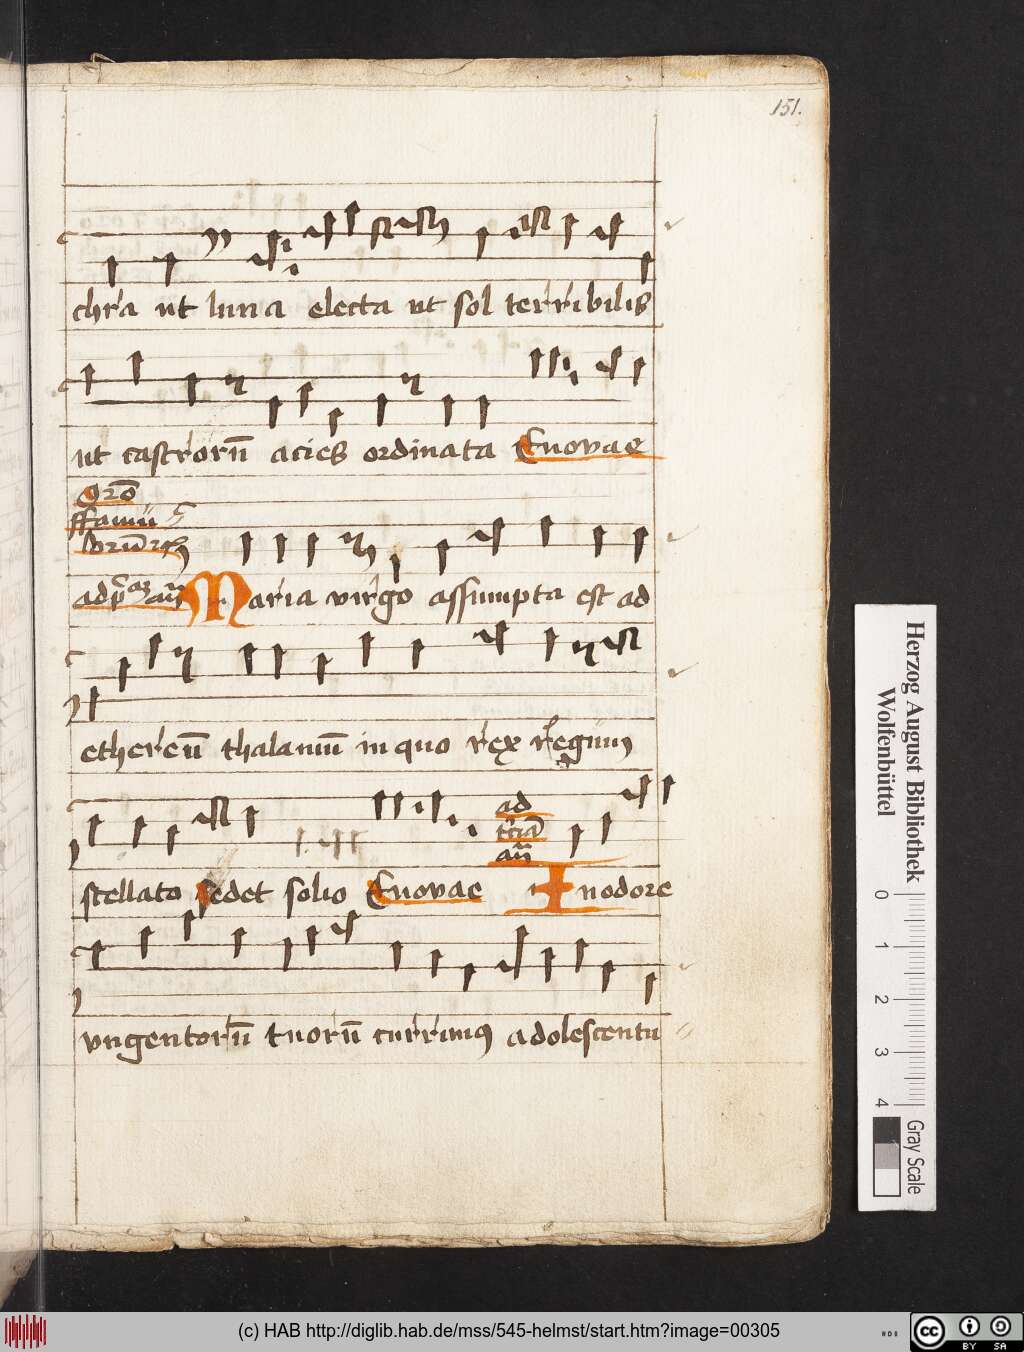 151.
chra ut luna electa ut sol terribilis
ut castrorū acies ordinata Euovae
Oro
ffamu
adp̄ az añ Maria virgo assumpta est ad
ethereū thalamū in quo rex regum
ad
t'ciā
añ
stellato sedet solio Euovae In odore
vngentorū tuorū currimus adolescentu
Herzog August Bibliothek
Wolfenbüttel
0 1 2 3 4
Gray Scale
(c) HAB http://diglib.hab.de/mss/545-helmst/start.htm?image=00305
cc BY SA